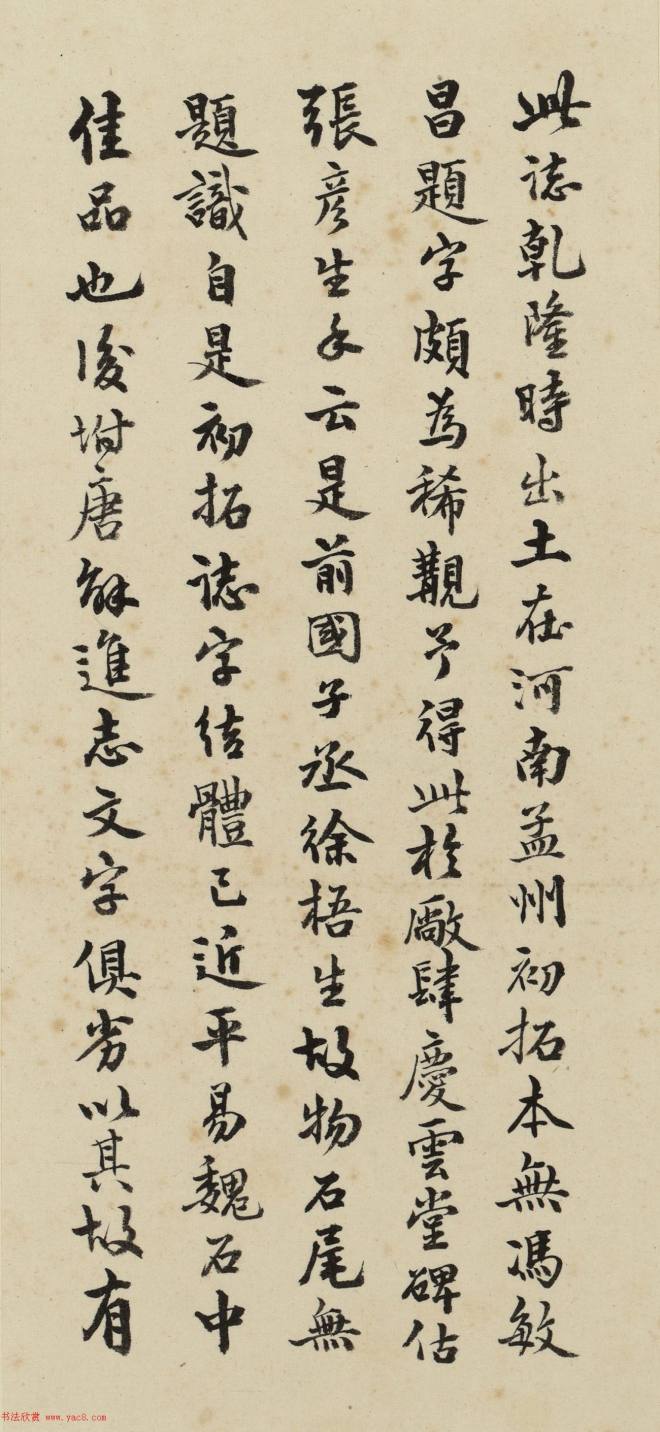 此誌乾隆時出土在河南孟州初拓本無馮敏
昌題字頗為稀覯予得此於廠肆慶雲堂碑估
張彦生手云是前國子丞徐梧生故物石尾無
題識自是初拓誌字結體已近平易魏石中
佳品也後坿唐解進志文字俱劣以其故有
书法欣赏 www.yac8.com